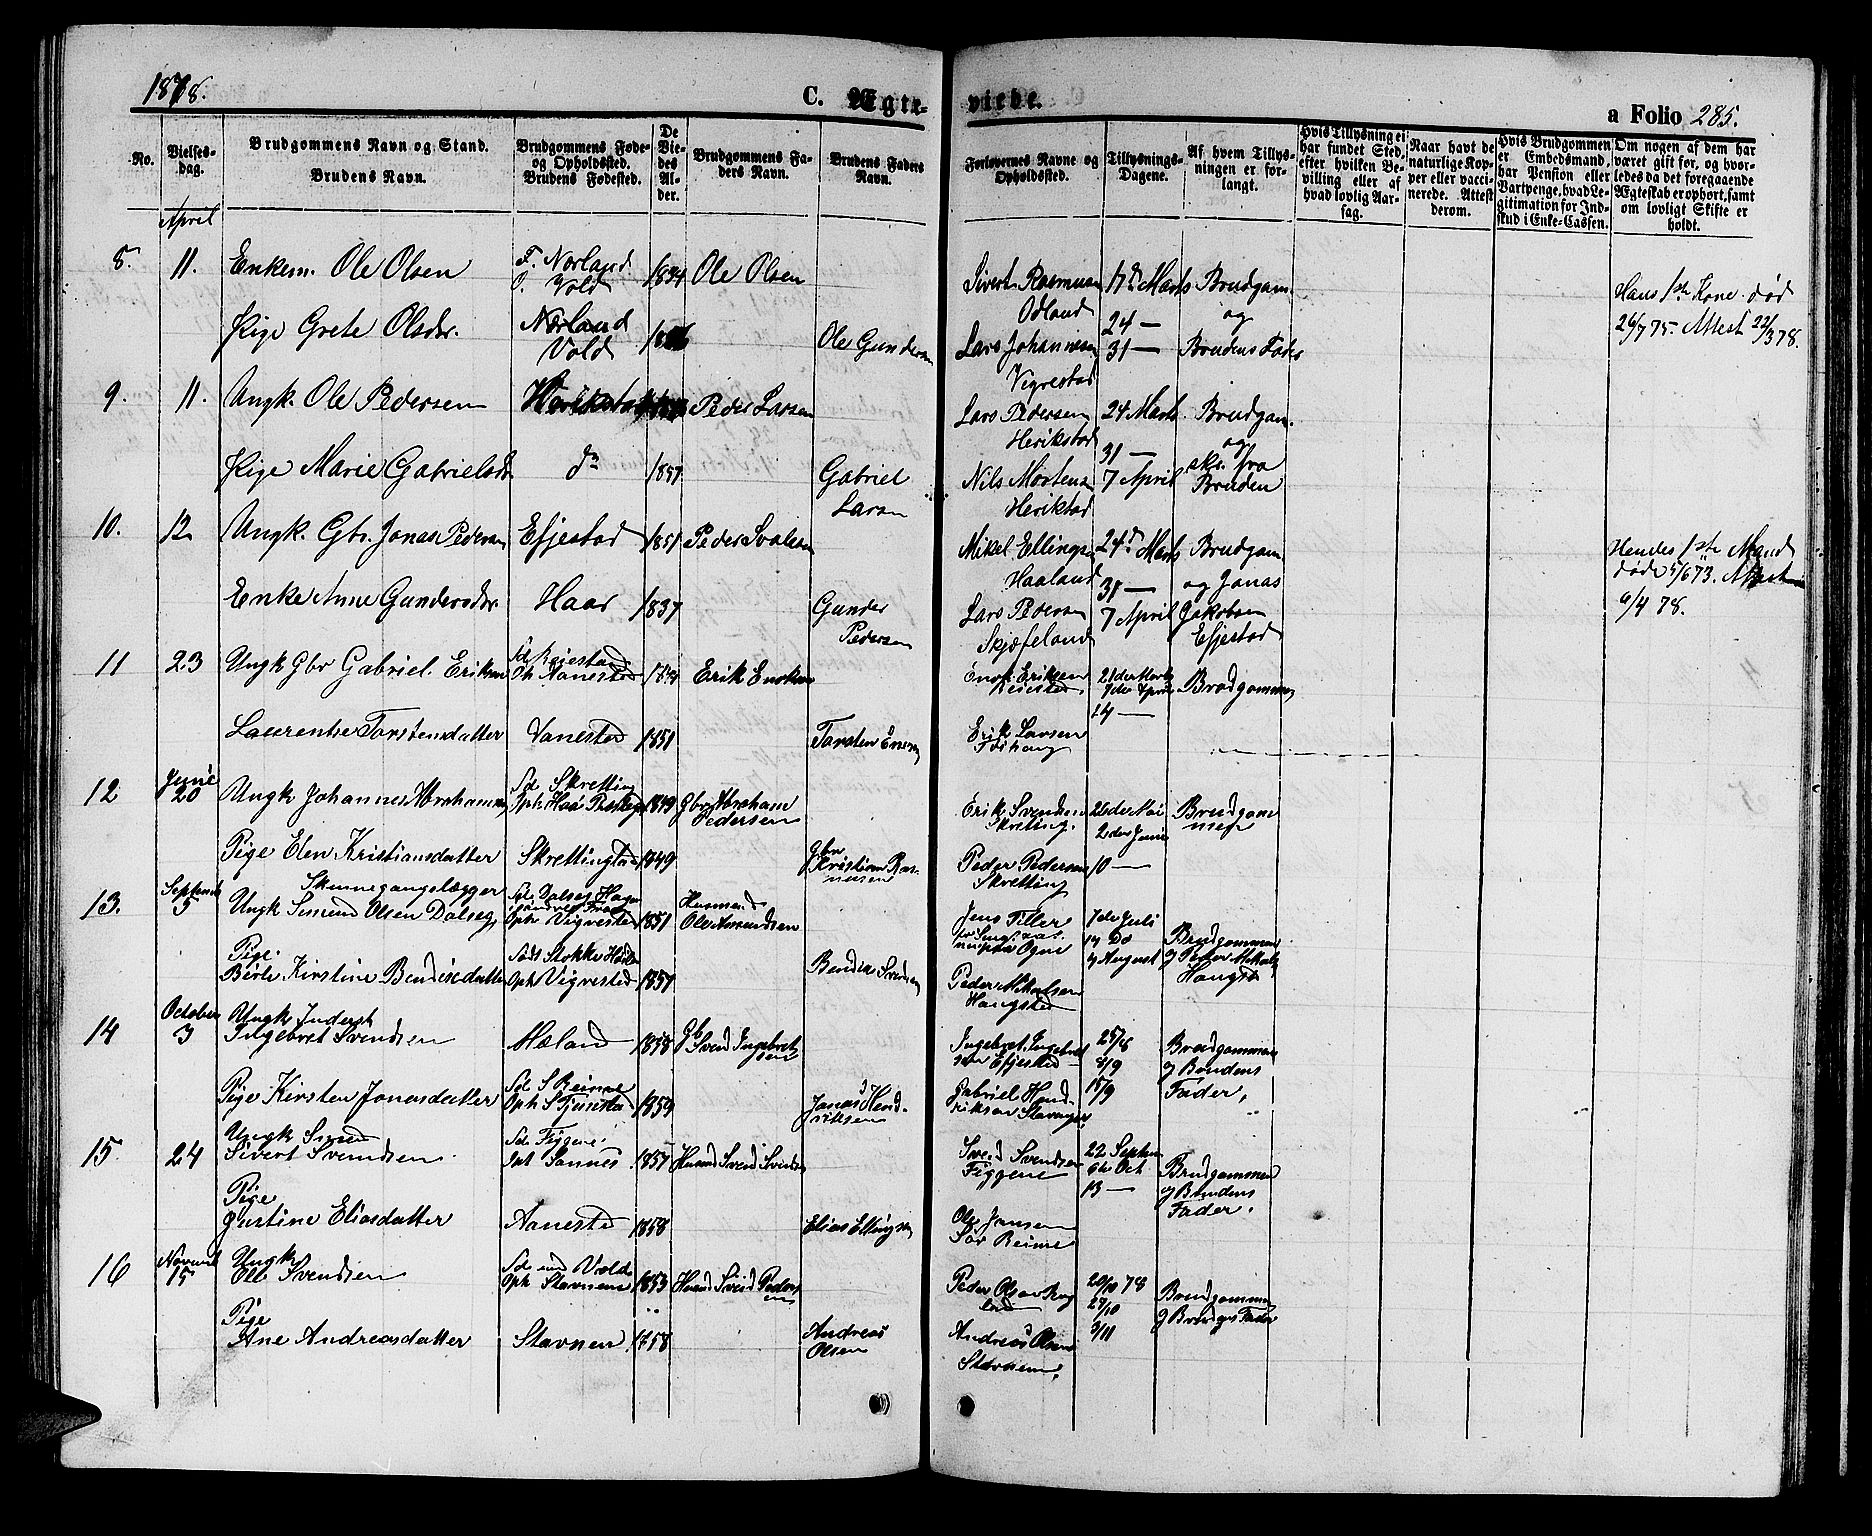 1878.
C. Ægte-
viede.
a Folio 285.
No.
Vielses-
dag.
Brudgommens Navn og Stand.
Brudens Navn.
Brudgommens Føde-
og Opholdssted.
Brudens Fødested.
De
Vie-
des
Al-
der.
Brudgommens Fa-
ders Navn.
Brudens Faders
Navn.
Forlovernes Navne og
Opholdssted.
Tillysnings-
Dagene.
Af hvem Tillys-
ningen er for-
langt.
Hvis Tillysning ei
har fundet Sted,
efter hvilken Be-
villing eller af
hvad lovlig Aar-
sag.
Naar havt de
naturlige Kop-
per eller vacci-
nerede. Attest
derom.
Hvis Brudgommen
er Embedsmand,
har Pension eller
Vartpenge, hvad Le-
gitimation for Ind-
skud i Enke-Cassen.
Om nogen af dem har
været gift før, og hvor-
ledes da det foregaaende
Ægteskab er ophørt, samt
om lovligt Skifte er
holdt.
April
8. 11. Enkem. Ole Olsen
F. Norland
O. Vold
1834 Ole Olsen
Sivert Rasmusen
Odland
17d Marts
24 —
31 —
Brudgom
og
Brudens Fader
Hans 1ste Kone død
26/7 75. Attest 22/3 78.
Pige Grete Olsdr.
Norland
Vold
Ole Gundersen
Lars Johannesen
Vigrestad
9. 11. Ungk. Ole Pedersen
Herikstad
Peder Larsen
Lars Pedersen
Herikstad
24 Marts
31 —
7 April
Brudgom.
og
skr. fra
Bruden
Pige Marie Gabrielsdr.
do
1857
Gabriel
Larsen
Nils Mortens
Herikstad
10. 12 Ungk. Gbr. Jonas Pedersen
Efjestad
1851
Peder
Mikel Ellingsen
Haaland
24d Marts
31 —
7 April
Brudgom
og Jonas
Jakobsen
Efjestad
Hendes 1ste Mand
døde 5/6 73. Attest
6/4 78.
Enke Anne Gundersdr.
Haar
1837
Gunder
Pedersen
Lars Pedersen
Skjæfeland
11 23 Ungk Gbr Gabriel Eriksen
Erik Enoksen
Enok Eriksen
21de Marts
7de April
14 —
Brudgommen
Laurentse Torstensdatter
Vanestad
1851
Torsten
Erik Larsen
12
Juni
20
Ungk Johannes Abrahamsen
Fød Skretting
1849
Gbr Abraham
Pedersen
Erik Svendsen
Skretting.
2den Juni
10 —
Brudgom
men
Pige Elen Kristiansdatter
1849
Gbr
Kristian Ras-
musen
Peder Pedersen
Skretting
13.
Septemb
5
Skinnegangslægger
Ungk Simend Olsen Dalseg
Oph Vigrestad
1851
Husmand
Ole Amundsen
Jens Tiller
Ogne
7de Juli
14 Do
4 August
Brudgommen
Pige
Berte Kirstine Bendixdatter
Oph Vigrestad
1857
Bendix Svendsen
Peder Mikalsen
Haugstad
14
October
3
Ungk Inderst
Ingebret Svendsen
Hæland
1858
Gb
Svend Ingebret
sen
Ingebret Ingebret
sen Efjestad
25/8
8/9
15/9
Brudgommen
og Brudens
Fader,
Pige Kirsten Jonasdatter
Fød S Reime
1859
Jonas Hend-
riksen
Gabriel Hend-
riksen Stavnem
15. 24
Ungk
Sivert Svendsen
Fød Figgene
1857
Husmd Svend Svendsen
Svend Svendsen
Figgene
22 Septem
6te Oct
13 —
Brudgommen
og Brudens
Fader.
Pige
Justine Eliasdatter
Aanestad
1858
Elias Ellingsen
Ole Jansen
Sør Reime
16
Novemb
15
Ungk
Ole Svendsen
Oph Stavnem
1853
Husmd Svend Peders
en
Peder Olsen
20/10 78
27/10
3/11
Brudgommen
og Brudens Fader
Pige
Ane Andreasdatter
Stavnem
1858
Andreas
Olsen
Andreas Olsen
Stavnem,